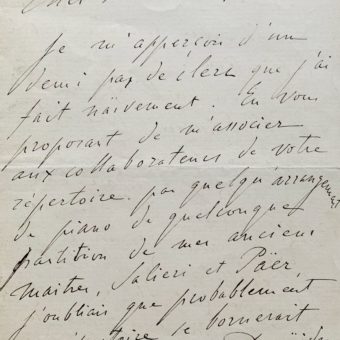 Je m'apperçois d'un
demi pas de clerc que j'ai
fait naïvement. En vous
proposant de m'associer
aux collaborateurs de votre
répertoire par quelqu'arrangement
de piano de quelconque
partition de mes anciens
maitres, Salieri et Paër,
j'oubliais que probablement
se bornerait